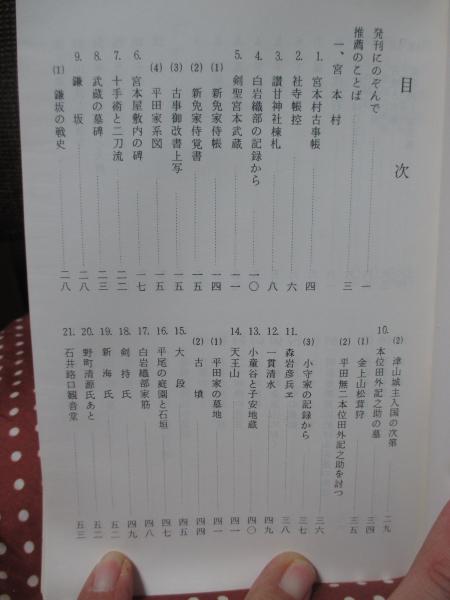 目次
発刊にのぞんで……一
推薦のことば……三
一、宮本村
1. 宮本村古事帳……四
2. 社寺帳控……六
3. 讃甘神社棟札……八
4. 白岩織部の記録から……一〇
5. 剣聖宮本武蔵……一一
(1) 新免家侍帳……一四
(2) 新免家侍覚書……一五
(3) 古事御改書上写……一五
(4) 平田家系図……一五
6. 宮本屋敷内の碑……一七
7. 十手術と二刀流……二二
8. 武蔵の墓碑……二三
9. 鎌坂……二八
(1) 鎌坂の戦史……二八
(2) 津山城主入国の次第……二九
10. 本位田外記之助の墓……三四
(1) 金上山松茸狩……三五
(2) 平田無二本位田外記之助を討つ
(3) 小守家の記録から……三六
11. 森岩彦兵ヱ……三七
12. 一貫清水……三八
13. 小童谷と子安地蔵……四〇
14. 天王山……四一
(1) 平田家の墓地……四一
(2) 古墳……四四
15. 大段……四五
16. 平尾の庭園と石垣……四七
17. 白岩織部家筋……四八
18. 劍持氏……四九
19. 新海氏……五二
20. 野町清源氏あと……五二
21. 石井路口観音堂……五三